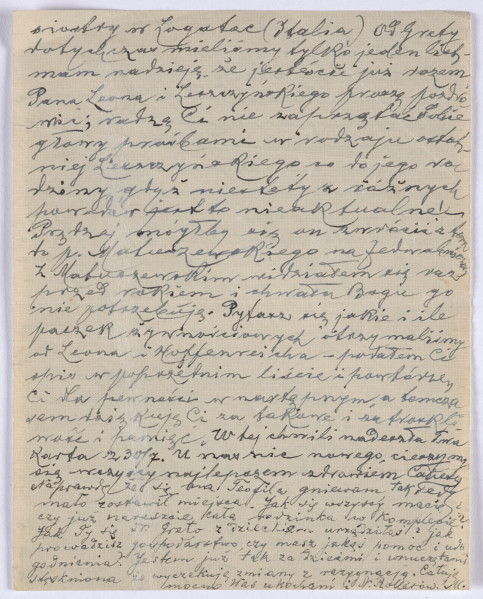 siostry w Logatac (Italia) Od Grety
dotychczas mieliśmy tylko jeden list
mam nadzieję, że jesteście już razem
Pana Leona i Leszczyńskiego proszę pozdro
wić; radzę Ci nie zaprzątać Sobie
głowy prośbami w rodzaju ostat
niej Leszczyńskiego co do jego ro
dziny gdyż niestety z różnych
powodów jest to nieaktualne!
Prędzej mógłby się on zwrócić z tem
do p. Matuszewskiego na
Z Matuszewskim widziałem się raz
przed rokiem i chwała Bogu go
nie potrzebuję. Pytasz się jakie i ile
paczek żywnościowych otrzymaliśmy
od Leona i Hoffenreicha - podałem Ci
spis w poprzednim liście i powtórzę
Ci dla pewności w następnym, a tymcza
sem dziękuję Ci za takowe i za troskli
wość i pamięć. W tej chwili nadeszła Twa
karta z 30/7. U nas nic nowego, cieszymy
się wszyscy najlepszem zdrowiem Całuję
Naprawdę że się na Teofila gniewam tak
mało zostawił miejsca. Jak się wszyscy macie
czy już na reszcie cała rodzinka w komplecie?
Jak Ty się Greto z dzieckiem urządziłaś i jak
prowadzisz gospodarstwo czy masz jakąś pomoc i
godzienia. Jestem już tak za Dziećmi i wnuczętami
stęskniona że wyczekuję zmiany z rezygnacją. Całuję
mocno Was ukochani